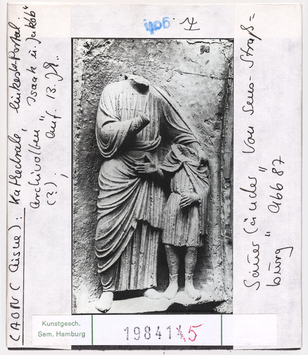 got.
Pl.
LAON (Aisne): Kathedrale, linkes W-Portal.
Archivolten "Isaak u. Jakob"
(?), Auf. 13. Jh.
Sauerländer "Von Sens - Straß=
burg" Abb 87
Kunstgesch.
Sem. Hamburg
198414 5